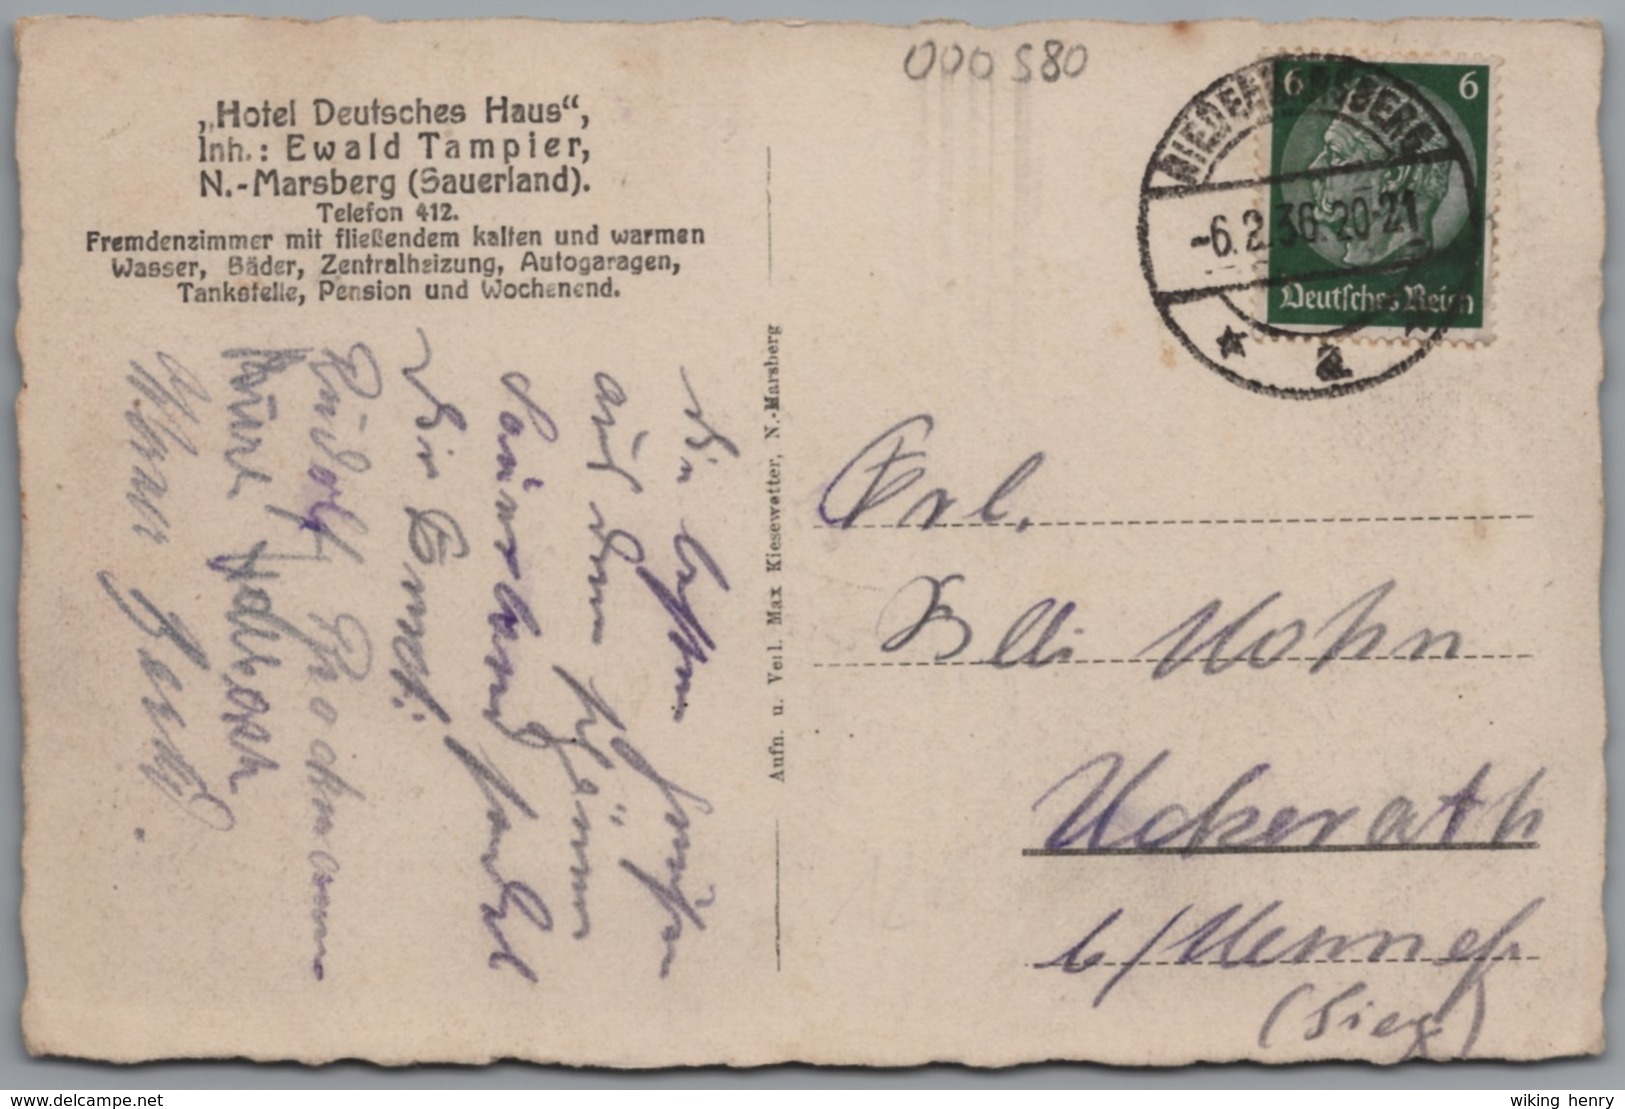 000580
„Hotel Deutsches Haus“,
Inh.: Ewald Tampier,
N.-Marsberg (Sauerland).
Telefon 412.
Fremdenzimmer mit fließendem kalten und warmen
Wasser, Bäder, Zentralheizung, Autogaragen,
Tankstelle, Pension und Wochenend.
NIEDERMARSBERG
-6.2.36.20-21
a
6 6
Deutsches Reich
Die besten Grüße
aus dem schönen
Sauerland sendet
Dir Ernst
Rudolf
Aufn. u. Verl. Max Kiesewetter, N.-Marsberg
Frl.
Elli Hohn
Uckerath
b/Hennef
(Sieg)
www.delcampe.net
wiking henry